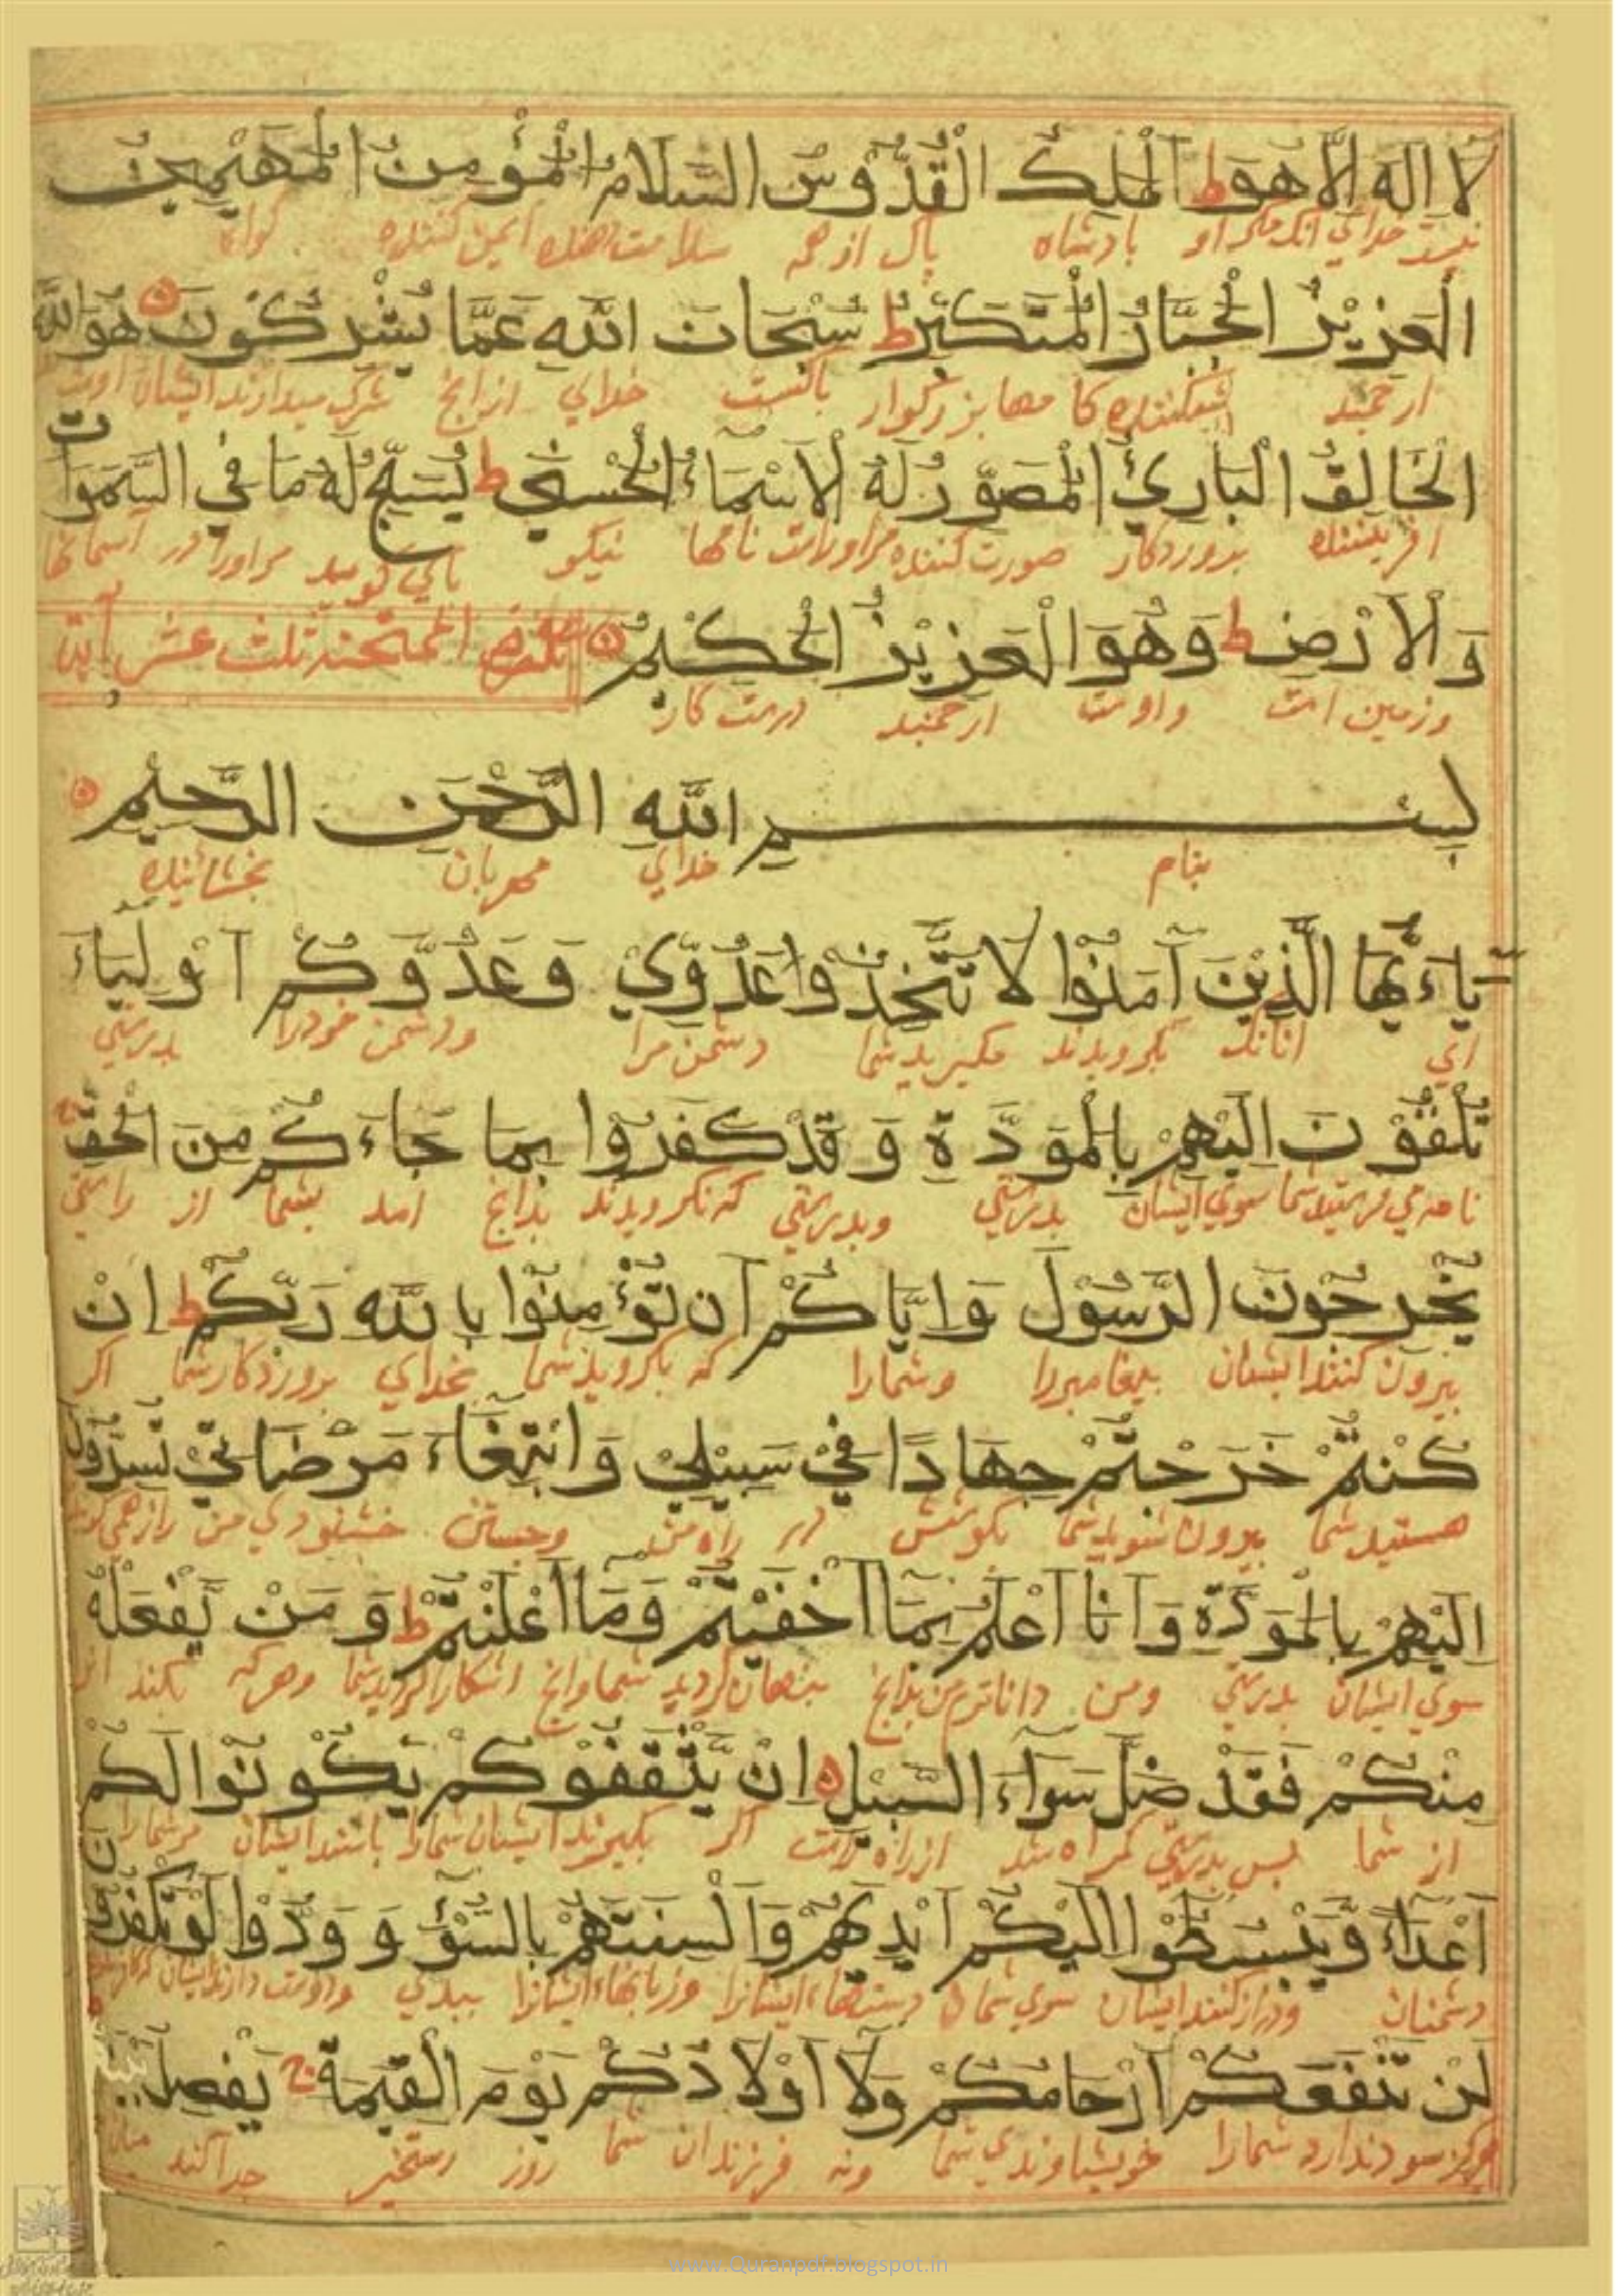 لا اله الا هو ط الملك القدوس السلام المؤمن المهيمن
نيست خداي انك مكر او بادشاه پاك از همه سلامت دهنده ايمن كننده كواه
العزيز الجبار المتكبر ط سبحان الله عما يشركون ه هو الله
ارجمند شكننده كامها بزركوار پاكست خداي از انج شرك ميدارند ايشان اوست
الخالق البارئ المصور له الاسماء الحسنى ط يسبح له ما في السموات
افريننده پروردكار صورت كننده مراوراست نامها نيكو پاكي كويد مراورا در آسمانها
والارض ط وهو العزيز الحكيم ه الممتحنه ثلث عشر آية
وزمين است واوست ارجمند درست كار
بسم الله الرحمن الرحيم ه
بنام خداي مهربان بخشاينده
ياءيها الذين آمنوا لا تتخذوا عدوي وعدوكم اولياء
اي انانك بكرويدند مكيريد شما دشمن مرا ودشمن خودرا بدرستي
تلقون اليهم بالمودة وقد كفروا بما جاءكم من الحق
نامه مي فرستيد شما سوي ايشان بدرستي وبدرستي كه نكرويدند بدانج امد بشما از راستي
يخرجون الرسول واياكم ان تؤمنوا بالله ربكم ط ان
بيرون كنند ايشان پيغامبررا وشمارا كه بكرويد شما بخداي پروردكار شما اكر
كنتم خرجتم جهادا في سبيلي وابتغاء مرضاتي تسرون
هستيد شما بيرون شويد شما بكوشش در راه من وجستن خشنودي من راز همي كويد
اليهم بالمودة وانا اعلم بما اخفيتم وما اعلنتم ط ومن يفعله
سوي ايشان بدرستي ومن داناترم من بدانج پنهان كرديد شما وانج اشكارا كرديد شما وهركه بكند ان
منكم فقد ضل سواء السبيل ه ان يثقفوكم يكونوا لكم
از شما پس بدرستي كمراه شد از راه راست اكر بكيرند ايشان شمارا باشند ايشان مر شمارا
اعداء ويبسطوا اليكم ايديهم والسنتهم بالسوء وودوا لو تكفرون
دشمنان ودراز كنند ايشان سوي شما دستهاء ايشانرا وزبانهاء ايشانرا ببدي ودوست دارند ايشان
لن تنفعكم ارحامكم ولا اولادكم يوم القيمة ج يفصل
هركز سود ندارد شمارا خويشاوندي شما ونه فرزندان شما روز رستخيز جدا كند ميان
www.Quranpdf.blogspot.in